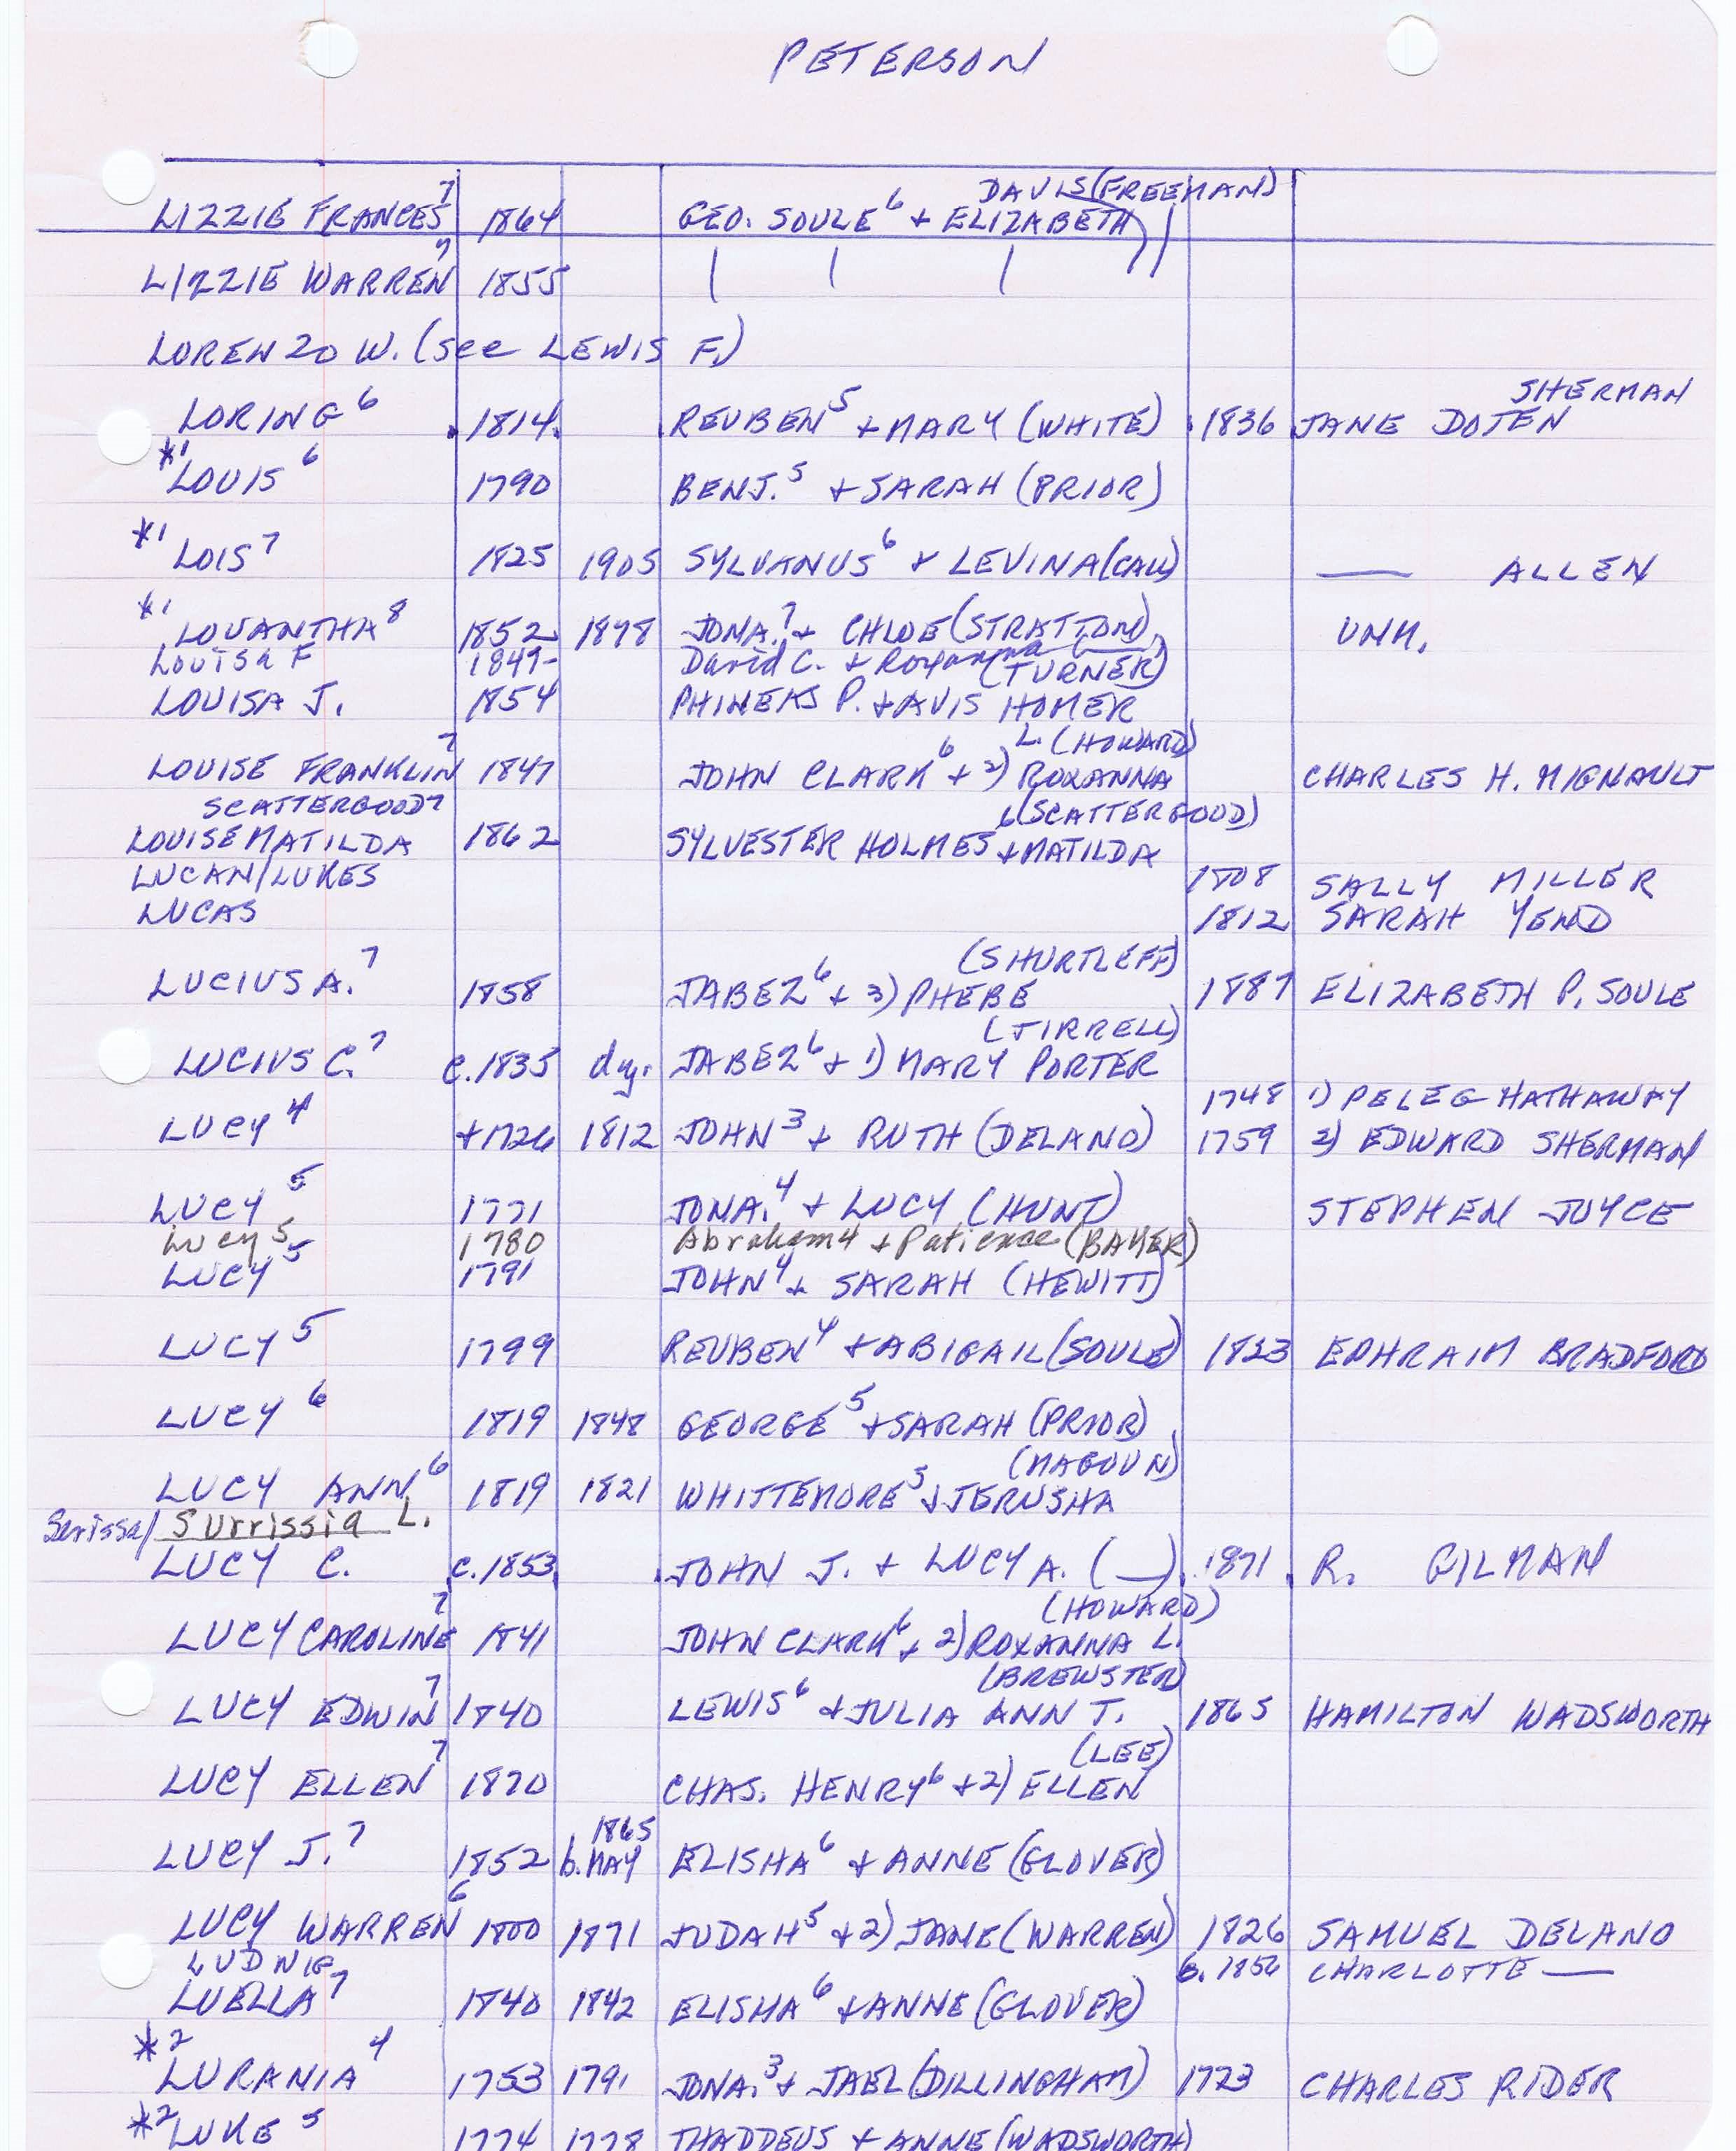 PETERSON
DAVIS (FREEMAN)
LIZZIE FRANCES7 1864 GEO. SOULE6 + ELIZABETH
LIZZIE WARREN7 1855
LORENZO W. (see LEWIS F.)
SHERMAN
LORING6 1814 REUBEN5 + MARY (WHITE) 1836 JANE DOTEN
*1 LOUIS6 1790 BENJ.5 + SARAH (PRIOR)
*1 LOIS7 1825 1905 SYLVANUS6 + LEVINA (CALL) — ALLEN
*1 LOVANTHA8 1852 1898 JONA.7 + CHLOE (STRATTON) UNM.
Louisa F 1849- David C. + Roxanna (TURNER)
LOUISA J. 1854 PHINEAS P. + AVIS HOMER
L. (HOWARD)
LOUISE FRANKLIN7 1847 JOHN CLARK6 + 2) ROXANNA CHARLES H. MIGNAULT
SCATTERGOOD7 (SCATTERGOOD)
LOUISE MATILDA 1862 SYLVESTER HOLMES6 + MATILDA
LUCAN/LUKES 1808 SALLY MILLER
LUCAS 1812 SARAH YEND
(SHURTLEFF)
LUCIUS A.7 1858 JABEZ6 + 3) PHEBE 1887 ELIZABETH P. SOULE
(TIRRELL)
LUCIUS C.7 c.1835 dy. JABEZ6 + 1) MARY PORTER
1748 1) PELEG HATHAWAY
LUCY4 +1726 1812 JOHN3 + RUTH (DELANO) 1759 2) EDWARD SHERMAN
LUCY5 1771 JONA.4 + LUCY (HUNT) STEPHEN JOYCE
Lucy5 1780 Abraham4 + Patience (BAKER)
LUCY5 1791 JOHN4 + SARAH (HEWITT)
LUCY5 1799 REUBEN4 + ABIGAIL (SOULE) 1823 EPHRAIM BRADFORD
LUCY6 1819 1848 GEORGE5 + SARAH (PRIOR)
(MAGOUN)
LUCY ANN6 1819 1821 WHITTEMORE5 + JERUSHA
Serissa/ Surrissia L.
LUCY C. c.1853 JOHN J. + LUCY A. (__) 1871 R. GILMAN
(HOWARD)
LUCY CAROLINE7 1841 JOHN CLARK6 + 2) ROXANNA L.
(BREWSTER)
LUCY EDWIN7 1840 LEWIS6 + JULIA ANN T. 1865 HAMILTON WADSWORTH
(LEE)
LUCY ELLEN7 1870 CHAS. HENRY6 + 2) ELLEN
1865
LUCY J.7 1852 b. MAY ELISHA6 + ANNE (GLOVER)
LUCY WARREN6 1800 1871 JUDAH5 + 2) JANE (WARREN) 1826 SAMUEL DELANO
LUDWIG b. 1856 CHARLOTTE —
LUELLA7 1840 1842 ELISHA6 + ANNE (GLOVER)
*2 LURANIA4 1753 1791 JONA.3 + JAEL (DILLINGHAM) 1773 CHARLES RIDER
*2 LUKE5 1774 1778 THADDEUS + ANNE (WADSWORTH)